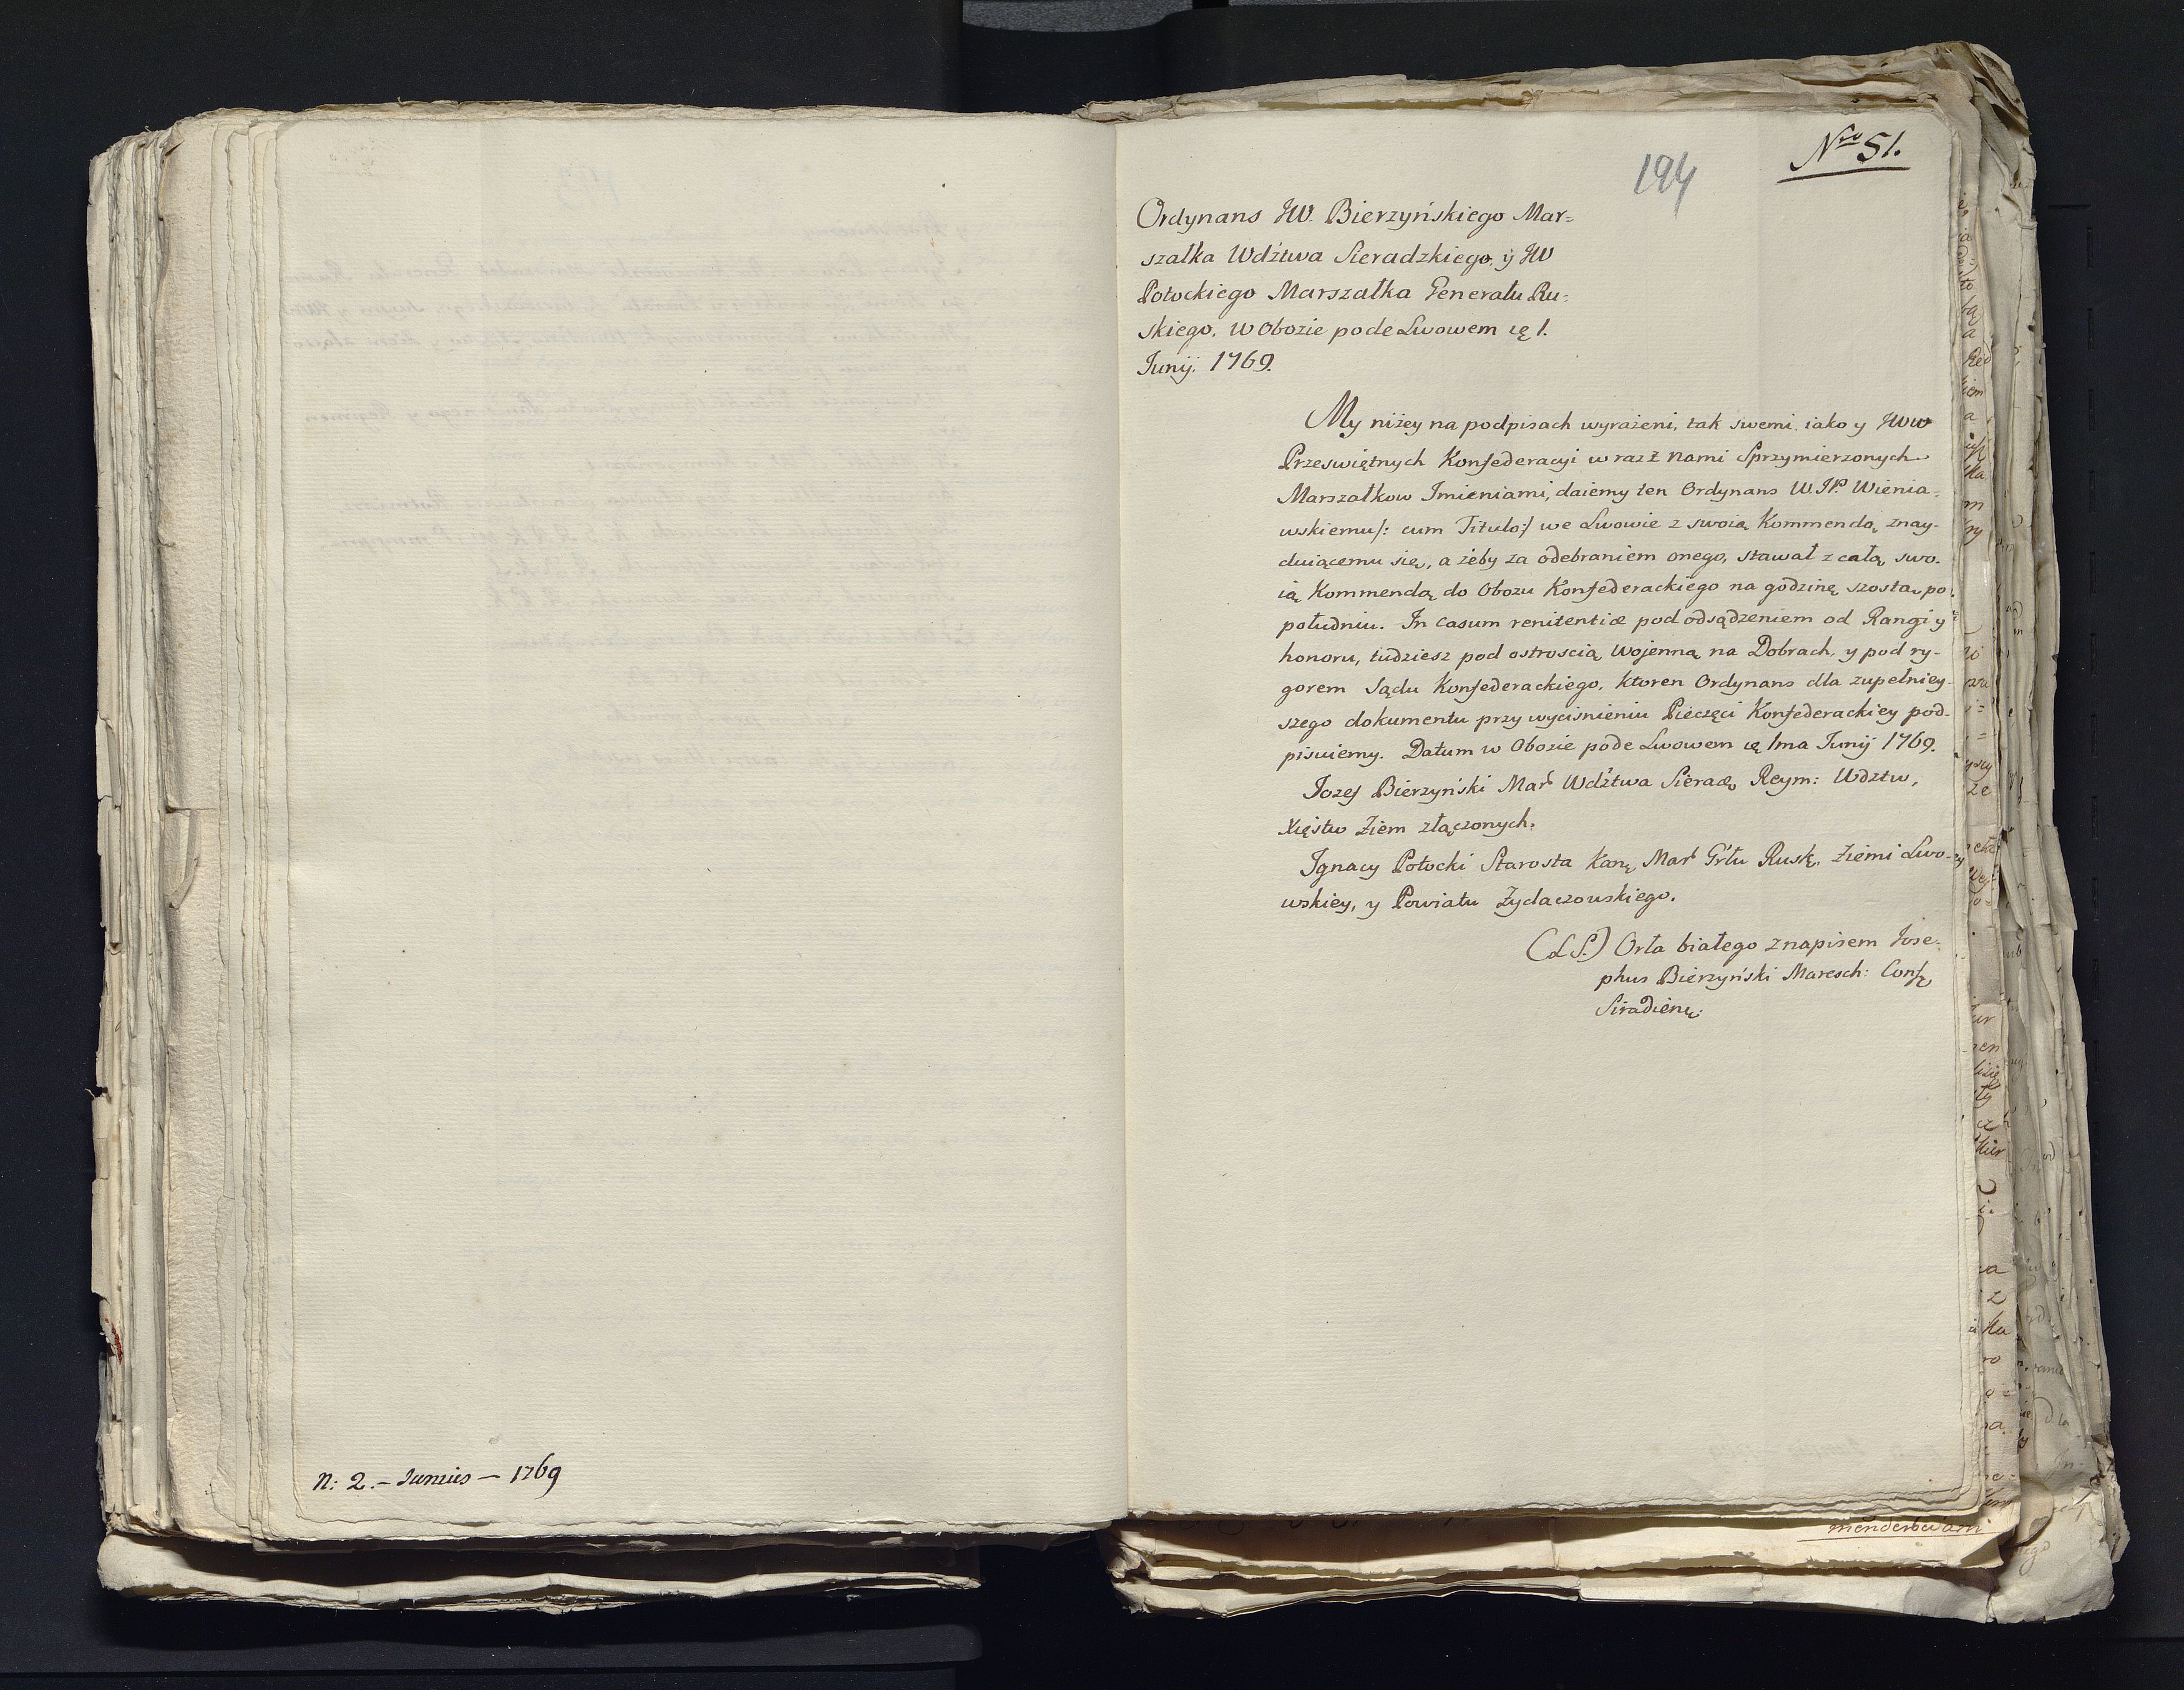 n: 2. – Junius – 1769
194
Nro 51.
Ordynans JW. Bierzyńskiego Mar=
szałka Wdźtwa Sieradzkiego, ÿ JW
Potockiego Marszałka Generału Ru=
skiego, w Obozie pode Lwowem ię 1.
Junij. 1769.
My niżey na podpisach wyrażeni, tak swemi, iako y JWW
Przeswiętnych Konfederacyi w raz z nami Sprzymierzonych
Marszałkow Jmieniami, daiemy ten Ordynans W.JP. Wienia=
wskiemu /: cum Titulo :/ we Lwowie z swoią Kommendą znay-
duiącemu się, a żeby za odebraniem onego, stawał z całą swo-
ią Kommendą do Obozu Konfederackiego na godzinę szostą po
południu. In casum renitentiæ pod odsądzeniem od Rangi y
honoru, tudziesz pod ostroscią Wojenną na Dobrach, y pod ry-
gorem Sądu Konfederackiego, Ktoren Ordynans dla zupełniey-
szego dokumentu przy wyciśnieniu Pieczęci Konfederackiey pod-
pisuiemy. Datum w Obozie pode Lwowem ię 1ma Junij 1769.
Jozef Bierzyński Mar Wdźtwa Sierad, Reym: Wdztw,
Xięstw Ziem złączonych.
Ignacy Potocki Starosta Kan, Mar Grłu Rusk, Ziemi Lwo-
wskiey, y Powiatu Zydaczowskiego.
(L S.) Orła białego z napisem Jose-
phus Bierzyński Maresch: Conf,
Siradien,
menderowani